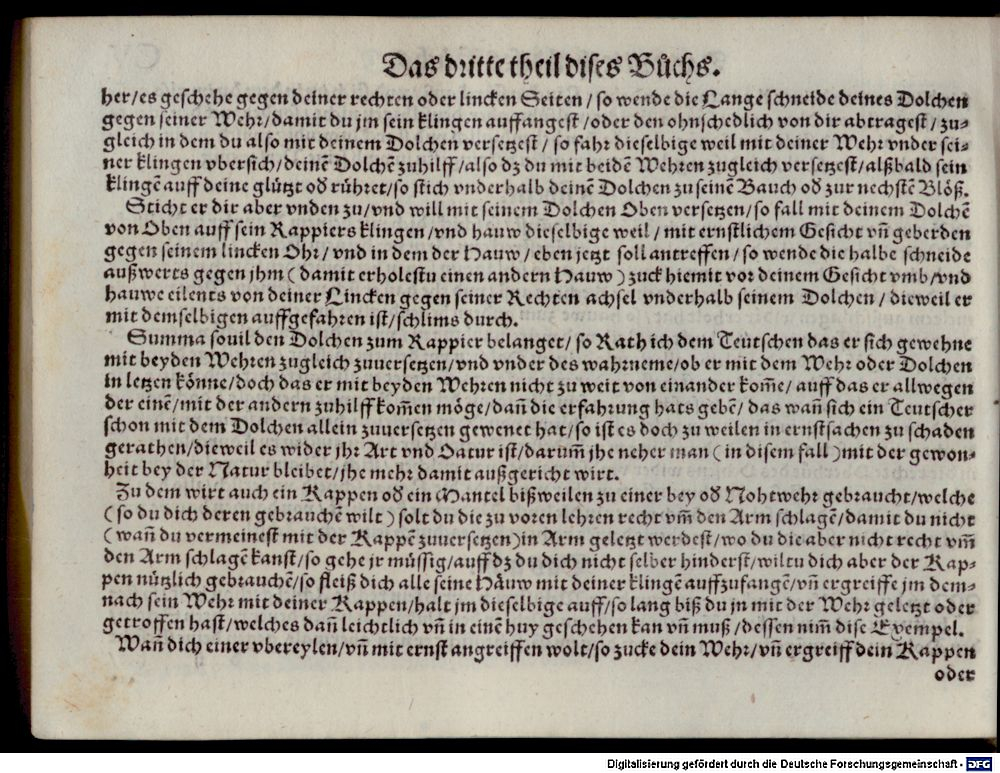 Das dritte theil dises Bůchs.
her/es geschehe gegen deiner rechten oder lincken Seiten / so wende die Lange schneide deines Dolchen
gegen seiner Wehr/damit du jm sein klingen auffangest /oder den ohnschedlich von dir abtragest / zu-
gleich in dem du also mit deinem Dolchen versetzest / so fahr dieselbige weil mit deiner Wehr vnder sei-
ner klingen vbersich/deinē Dolchē zuhilff/also dz du mit beidē Wehren zugleich versetzest/alßbald sein
klingē auff deine glützt od rühret/so stich vnderhalb deinē Dolchen zu seinē Bauch od zur nechstē Blöß.
Sticht er dir aber vnden zu/vnd will mit seinem Dolchen Oben versetzen/so fall mit deinem Dolchē
von Oben auff sein Rappiers klingen/vnd hauw dieselbige weil / mit ernstlichem Gesicht vn̄ geberden
gegen seinem lincken Ohr/ vnd in dem der Hauw / eben jetzt soll antreffen / so wende die halbe schneide
außwerts gegen jhm ( damit erholestu einen andern Hauw ) zuck hiemit vor deinem Gesicht vmb/vnd
hauwe eilents von deiner Lincken gegen seiner Rechten achsel vnderhalb seinem Dolchen / dieweil er
mit demselbigen auffgefahren ist/schlims durch.
Summa souil den Dolchen zum Rappier belanget/ so Rath ich dem Teutschen das er sich gewehne
mit beyden Wehren zugleich zuuersetzen/vnd vnder des wahrneme/ob er mit dem Wehr oder Dolchen
in letzen könne/doch das er mit beyden Wehren nicht zu weit von einander kom̄e/ auff das er allwegen
der einē/mit der andern zuhilff kom̄en möge/dan̄ die erfahrung hats gebē/ das wan̄ sich ein Teutscher
schon mit dem Dolchen allein zuuersetzen gewenet hat/so ist es doch zu weilen in ernstsachen zu schaden
gerathen/dieweil es wider jhr Art vnd Natur ist/darum̄ jhe neher man ( in disem fall ) mit der gewon-
heit bey der Natur bleibet/jhe mehr damit außgericht wirt.
Zu dem wirt auch ein Kappen od ein Mantel bißweilen zu einer bey od Nohtwehr gebraucht/welche
( so du dich deren gebrauchē wilt ) solt du die zu voren lehren recht vm̄ den Arm schlagē/damit du nicht
( wan̄ du vermeinest mit der Kappē zuuersetzen)in Arm geletzt werdest/wo du die aber nicht recht vm̄
den Arm schlagē kanst/so gehe jr müssig/auff dz du dich nicht selber hinderst/wiltu dich aber der Kap-
pen nützlich gebrauchē/so fleiß dich alle seine Häuw mit deiner klingē auffzufangē/vn̄ ergreiffe jm dem-
nach sein Wehr mit deiner Kappen/halt jm dieselbige auff/so lang biß du jn mit der Wehr geletzt oder
getroffen hast/welches dan̄ leichtlich vn̄ in einē huy geschehen kan vn̄ muß /dessen nim̄ dise Exempel.
Wan̄ dich einer vbereylen/vn̄ mit ernst angreiffen wolt/so zucke dein Wehr/vn̄ ergreiff dein Kappen
oder
Digitalisierung gefördert durch die Deutsche Forschungsgemeinschaft - DFG